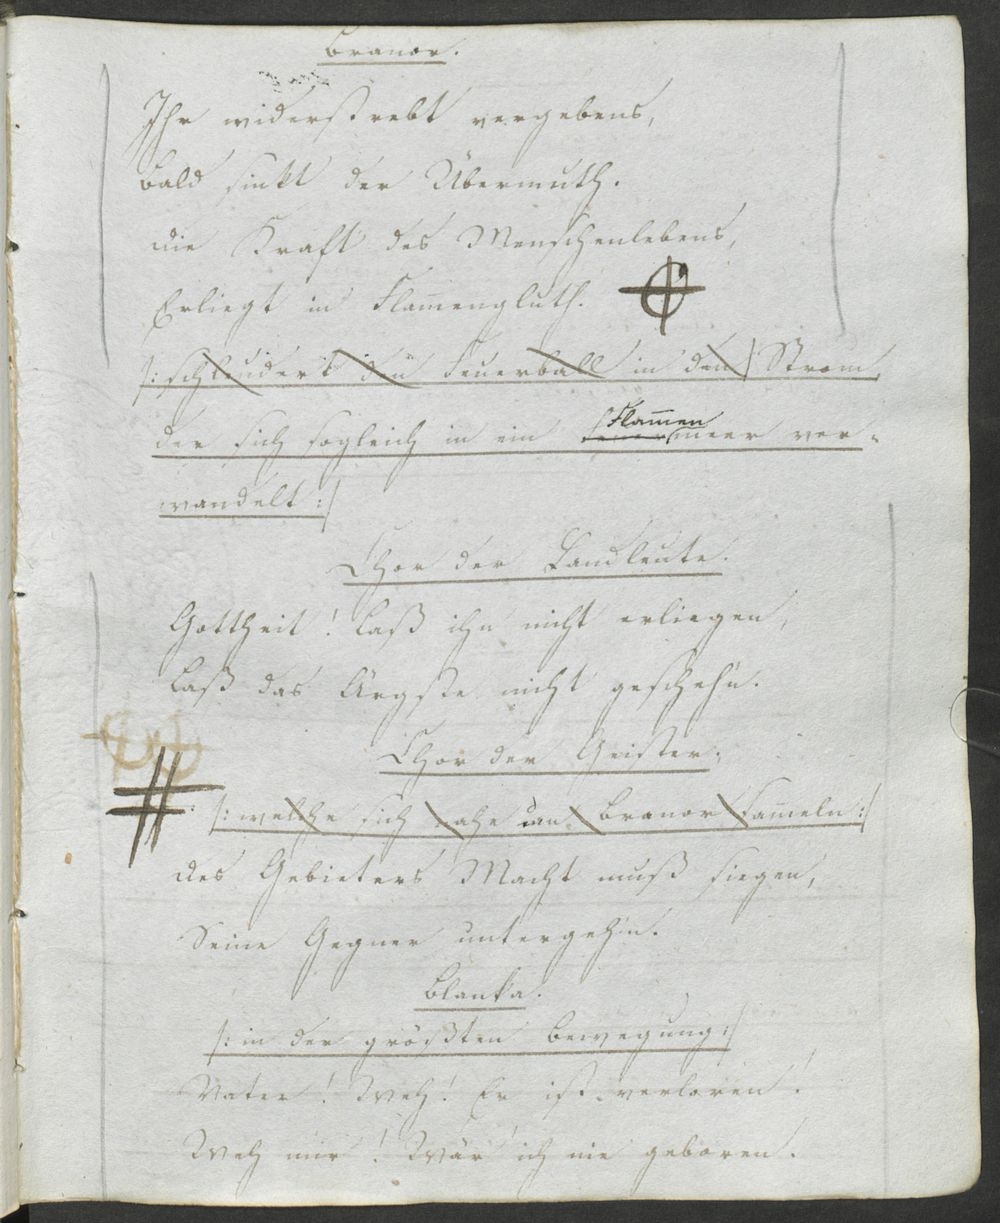 Branor.
Ihr widerstrebt vergebens,
Bald sinkt der Übermuth.
die Kraft des Menschenlebens,
Erliegt in Flam̄engluth.
/: schleudert den Feuerball in den Strom,
der sich sogleich in ein Flam̄en
meer ver=
wandelt :/
Chor der Landleute.
Gottheit! laß ihn nicht erliegen,
laß das Ärgste nicht gescheh'n.
Chor der Geister.
/: welche sich nahe an Branor sam̄eln :/
des Gebieters Macht muß siegen,
Seine Gegner untergeh'n.
Blanka.
/: in der größten Bewegung :/
Vater! Weh! Er ist verloren!
Weh mir! Wär' ich nie geboren.